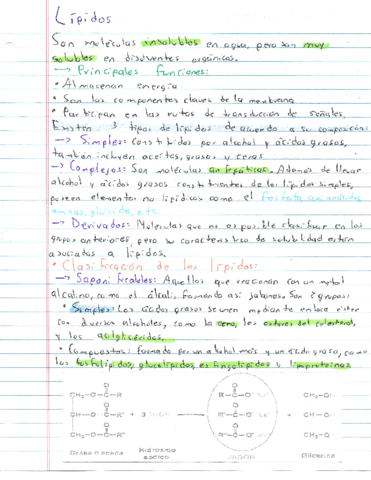 Lípidos
Son moléculas insolubles en agua, pero son muy
solubles en disolventes orgánicos.
→ Principales funciones:
• Almacenan energía
• Son los componentes claves de la membrana
• Participan en las rutas de transducción de señales.
Existen 3 tipos de lípidos de acuerdo a su composición:
→ Simples: Constituidos por alcohol y ácidos grasos,
también incluyen aceites, grasas y ceras
→ Complejos: Son moléculas anfipáticas. Además de llevar
alcohol y ácidos grasos constituyentes de los lípidos simples,
poseen elementos no lipídicos como el fosfato,
aminas, glúcidos, etc
→ Derivados: Moléculas que no es posible clasificar en los
grupos anteriores, pero su característica de solubilidad estén
asociados a lípidos.
• Clasificación de los lípidos:
→ Saponificables: Aquellos que reaccionan con un metal
alcalino, como el álcali, formando así jabones. Son 2 grupos:
• Simples: Los ácidos grasos se unen mediante enlace éster
con diversos alcoholes, como la cera, los ésteres del colesterol,
y los acilglicéridos.
• Compuestos: formado por un alcohol más y un ácido graso, como
los fosfolípidos, glucolípidos, esfingolípidos y lipoproteínas
O O
CH₂-O-C-R R-C-O⁻ CH₂-OH
O O
CH-O-C-R' + 3 R'-C-O⁻ + CH-OH
O O
CH₂-O-C-R'' R''-C-O⁻ CH₂-OH
Grasa o aceite Hidróxido JABÓN Glicerina
sódico